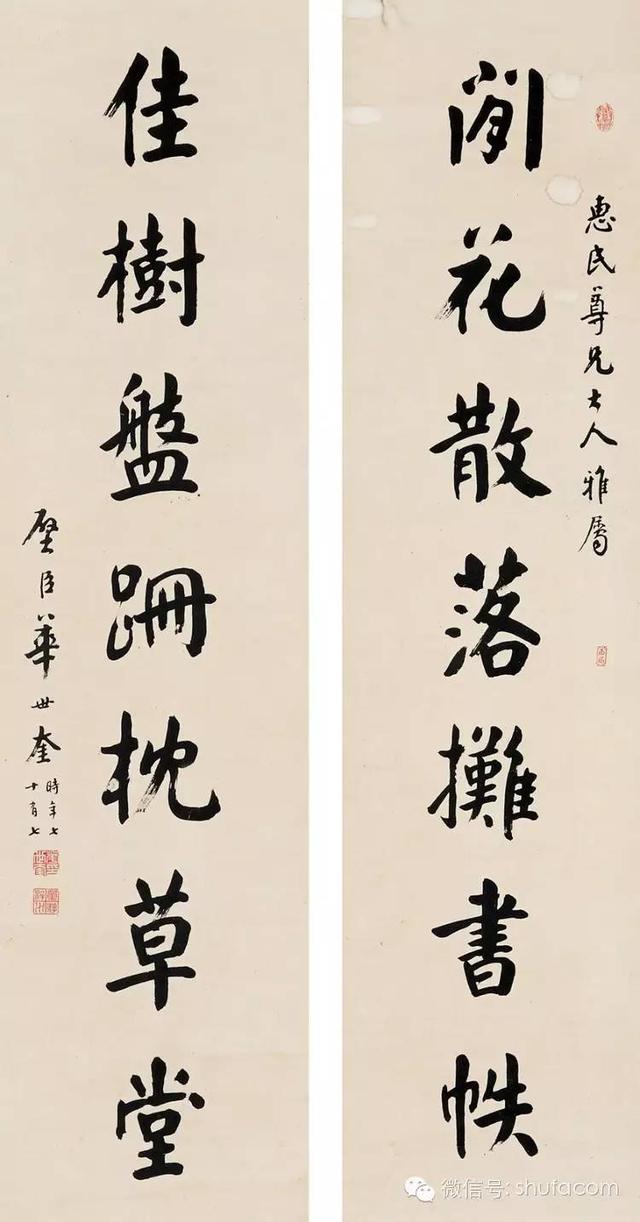 惠民尊兄大人雅属
閒花散落攤書帙
佳樹盤跚枕草堂
壁臣華世奎
時年七
十有七
微信号: shufacom